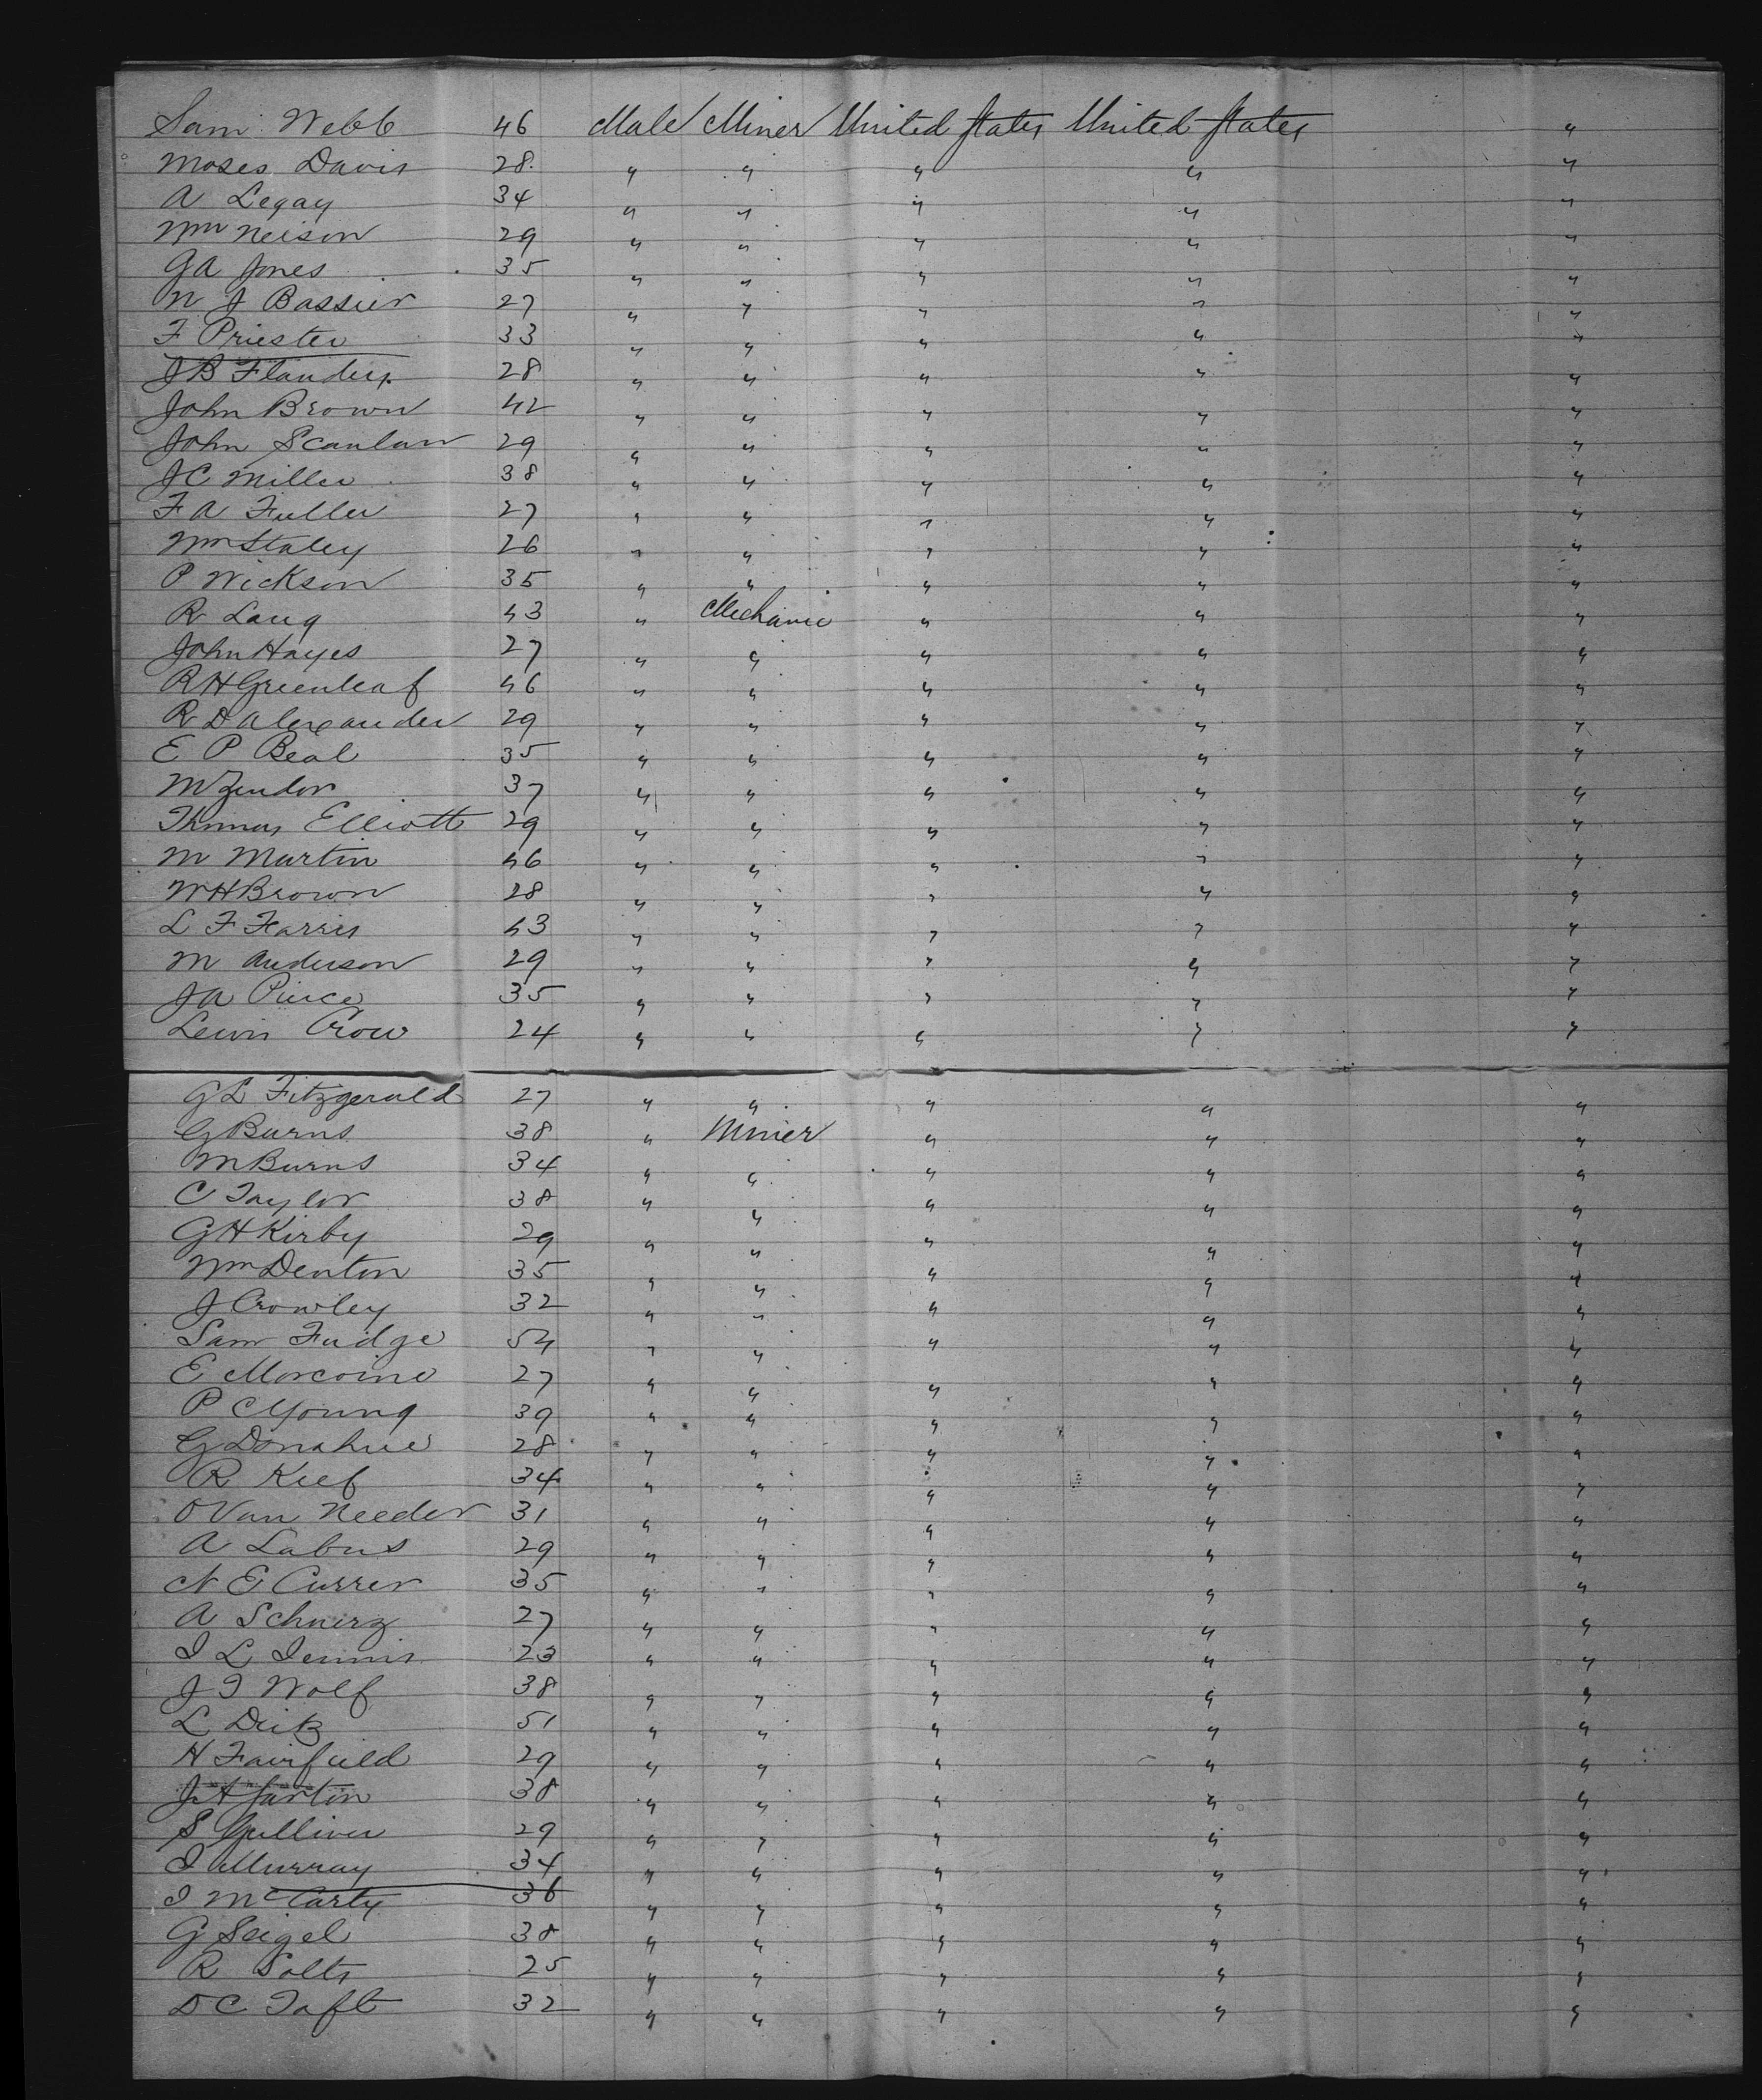 Sam Webb 46 Male Miner United States United States "
Moses Davis 28 " " " " "
A Legay 34 " " " " "
Wm Neison 29 " " " " "
GA Jones 35 " " " " "
N J Bassier 27 " " " " "
F Priester 33 " " " " "
JB Flanders 28 " " " " "
John Brown 42 " " " " "
John Scanlan 29 " " " " "
JC Miller 38 " " " " "
F A Fuller 27 " " " " "
Wm Staley 26 " " " " "
P Wickson 35 " " " " "
R Lang 43 " Mechanic " " "
John Hayes 27 " " " " "
RH Greenleaf 46 " " " " "
R D Alexander 29 " " " " "
E P Beal 35 " " " " "
M Zendor 37 " " " " "
Thomas Elliott 29 " " " " "
M Martin 46 " " " " "
WH Brown 28 " " " " "
L F Farris 43 " " " " "
M Anderson 29 " " " " "
JA Pierce 35 " " " " "
Lewis Crow 24 " " " " "
GL Fitzgerald 27 " " " " "
G Burns 38 " Miner " " "
M Burns 34 " " " " "
C Taylor 38 " " " " "
GH Kirby 29 " " " " "
Wm Denton 35 " " " " "
J Crowley 32 " " " " "
Sam Fudge 54 " " " " "
E Morcoine 27 " " " " "
P C Young 39 " " " " "
G Donahue 28 " " " " "
R Keef 34 " " " " "
O Van Needer 31 " " " " "
A Labus 29 " " " " "
N E Currer 35 " " " " "
A Schnerz 27 " " " " "
I L Dennis 23 " " " " "
J I Wolf 38 " " " " "
L Dietz 51 " " " " "
H Fairfield 29 " " " " "
JA 38 " " " " "
S Gulliver 29 " " " " "
I Murray 34 " " " " "
I McCarty 36 " " " " "
G Seigel 38 " " " " "
R Solts 25 " " " " "
D C Taft 32 " " " " "